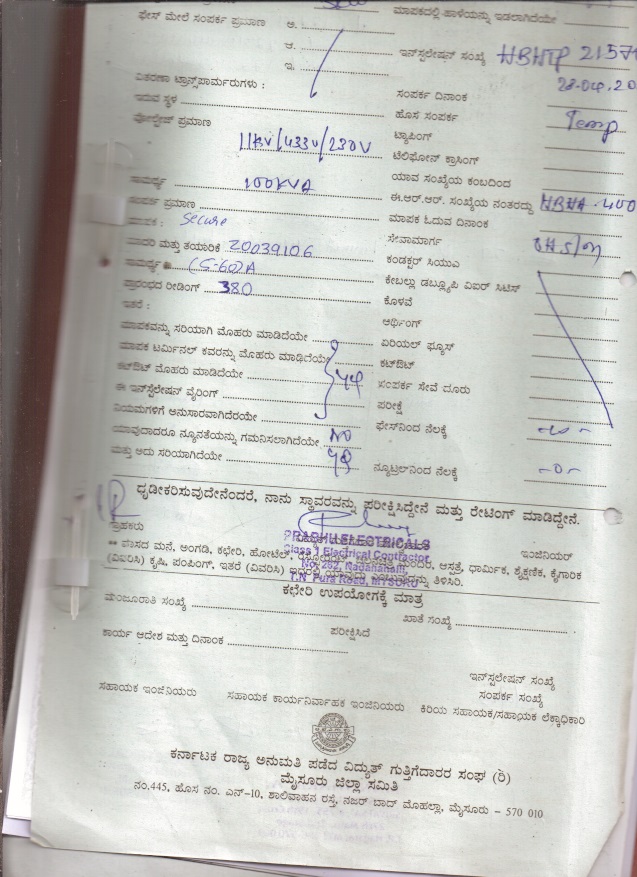 ಮಾಪಕದಲ್ಲಿ ಹಾಳೆಯನ್ನು ಇಡಲಾಗಿದೆಯೇ
ಫೇಸ್ ಮೇಲೆ ಸಂಪರ್ಕ ಪ್ರಮಾಣ ಅ.
ಆ. ಇನ್‌ಸ್ಟಲೇಷನ್ ಸಂಖ್ಯೆ HBHTP 2157
ಇ.
ವಿತರಣಾ ಟ್ರಾನ್ಸ್‌ಪಾರ್ಮರುಗಳು : ಸಂಪರ್ಕ ದಿನಾಂಕ 28.04.20
ಇರುವ ಸ್ಥಳ ಹೊಸ ಸಂಪರ್ಕ Temp
ವೋಲ್ಟೇಜ್ ಪ್ರಮಾಣ 11KV/433V/230V ಟ್ಯಾಪಿಂಗ್
ಟೆಲಿಫೋನ್ ಕ್ರಾಸಿಂಗ್
ಸಾಮರ್ಥ್ಯ 100KVA ಯಾವ ಸಂಖ್ಯೆಯ ಕಂಬದಿಂದ
ಸಂಪರ್ಕ ಪ್ರಮಾಣ ಈ.ಆರ್.ಆರ್. ಸಂಖ್ಯೆಯ ನಂತರದ್ದು HBHA-400
ಮಾಪಕ : Secure ಮಾಪಕ ಓದುವ ದಿನಾಂಕ
ಮಾದರಿ ಮತ್ತು ತಯಾರಿಕೆ 20039106 ಸೇವಾಮಾರ್ಗ
ಸಾಮರ್ಥ್ಯ (5-60)A ಕಂಡಕ್ಟರ್ ಸಿಯುಎ
ಪ್ರಾರಂಭದ ರೀಡಿಂಗ್ 380 ಕೇಬಲ್ಲು ಡಬ್ಲ್ಯೂಪಿ ವಿಐರ್ ಸಿಟಿಸ್
ಇತರೆ : ಕೊಳವೆ
ಅರ್ಥಿಂಗ್
ಮಾಪಕವನ್ನು ಸರಿಯಾಗಿ ಮೊಹರು ಮಾಡಿದೆಯೇ ಏರಿಯಲ್ ಫ್ಯೂಸ್
ಮಾಪಕ ಟರ್ಮಿನಲ್ ಕವರನ್ನು ಮೊಹರು ಮಾಡಿದೆಯೇ ಕಟ್‌ಔಟ್
ಕಟ್‌ಔಟ್ ಮೊಹರು ಮಾಡಿದೆಯೇ ಸಂಪರ್ಕ ಸೇವೆ ದೂರು
ಈ ಇನ್‌ಸ್ಟೆಲೇಷನ್ ವೈರಿಂಗ್ ಪರೀಕ್ಷೆ
ನಿಯಮಗಳಿಗೆ ಅನುಸಾರವಾಗಿದೆರೆಯೇ ಫೇಸ್‌ನಿಂದ ನೆಲಕ್ಕೆ
ಯಾವುದಾದರೂ ನ್ಯೂನತೆಯನ್ನು ಗಮನಿಸಲಾಗಿದೆಯೇ NO
ಮತ್ತು ಅದು ಸರಿಯಾಗಿದೆಯೇ ನ್ಯೂಟ್ರಲ್‌ನಿಂದ ನೆಲಕ್ಕೆ -0-
ಧೃಡೀಕರಿಸುವುದೇನೆಂದರೆ, ನಾನು ಸ್ಥಾವರವನ್ನು ಪರೀಕ್ಷಿಸಿದ್ದೇನೆ ಮತ್ತು ರೇಟಿಂಗ್ ಮಾಡಿದ್ದೇನೆ.
ಗ್ರಾಹಕರು ಇಂಜಿನಿಯರ್
PRABHU ELECTRICALS
Class 1 Electrical Contractor
T.N. Pura Road, MYSURU
** ವಾಸದ ಮನೆ, ಅಂಗಡಿ, ಕಛೇರಿ, ಹೋಟೆಲ್, ಆಸ್ಪತ್ರೆ, ಧಾರ್ಮಿಕ, ಶೈಕ್ಷಣಿಕ, ಕೈಗಾರಿಕ
(ವಿವರಿಸಿ) ಕೃಷಿ, ಪಂಪಿಂಗ್, ಇತರೆ (ವಿವರಿಸಿ) ತಿಳಿಸಿರಿ.
ಕಛೇರಿ ಉಪಯೋಗಕ್ಕೆ ಮಾತ್ರ
ಮಂಜೂರಾತಿ ಸಂಖ್ಯೆ ಖಾತೆ ಸಂಖ್ಯೆ
ಕಾರ್ಯ ಆದೇಶ ಮತ್ತು ದಿನಾಂಕ ಪರೀಕ್ಷಿಸಿದೆ
ಇನ್‌ಸ್ಟಲೇಷನ್ ಸಂಖ್ಯೆ
ಸಂಪರ್ಕ ಸಂಖ್ಯೆ
ಸಹಾಯಕ ಇಂಜಿನಿಯರು ಸಹಾಯಕ ಕಾರ್ಯನಿರ್ವಾಹಕ ಇಂಜಿನಿಯರು ಕಿರಿಯ ಸಹಾಯಕ/ಸಹಾಯಕ ಲೆಕ್ಕಾಧಿಕಾರಿ
ಕರ್ನಾಟಕ ರಾಜ್ಯ ಅನುಮತಿ ಪಡೆದ ವಿದ್ಯುತ್ ಗುತ್ತಿಗೆದಾರರ ಸಂಘ (ರಿ)
ಮೈಸೂರು ಜಿಲ್ಲಾ ಸಮಿತಿ
ನಂ.445, ಹೊಸ ನಂ. ಎನ್-10, ಶಾಲಿವಾಹನ ರಸ್ತೆ, ನಜರ್ ಬಾದ್ ಮೊಹಲ್ಲಾ, ಮೈಸೂರು - 570 010